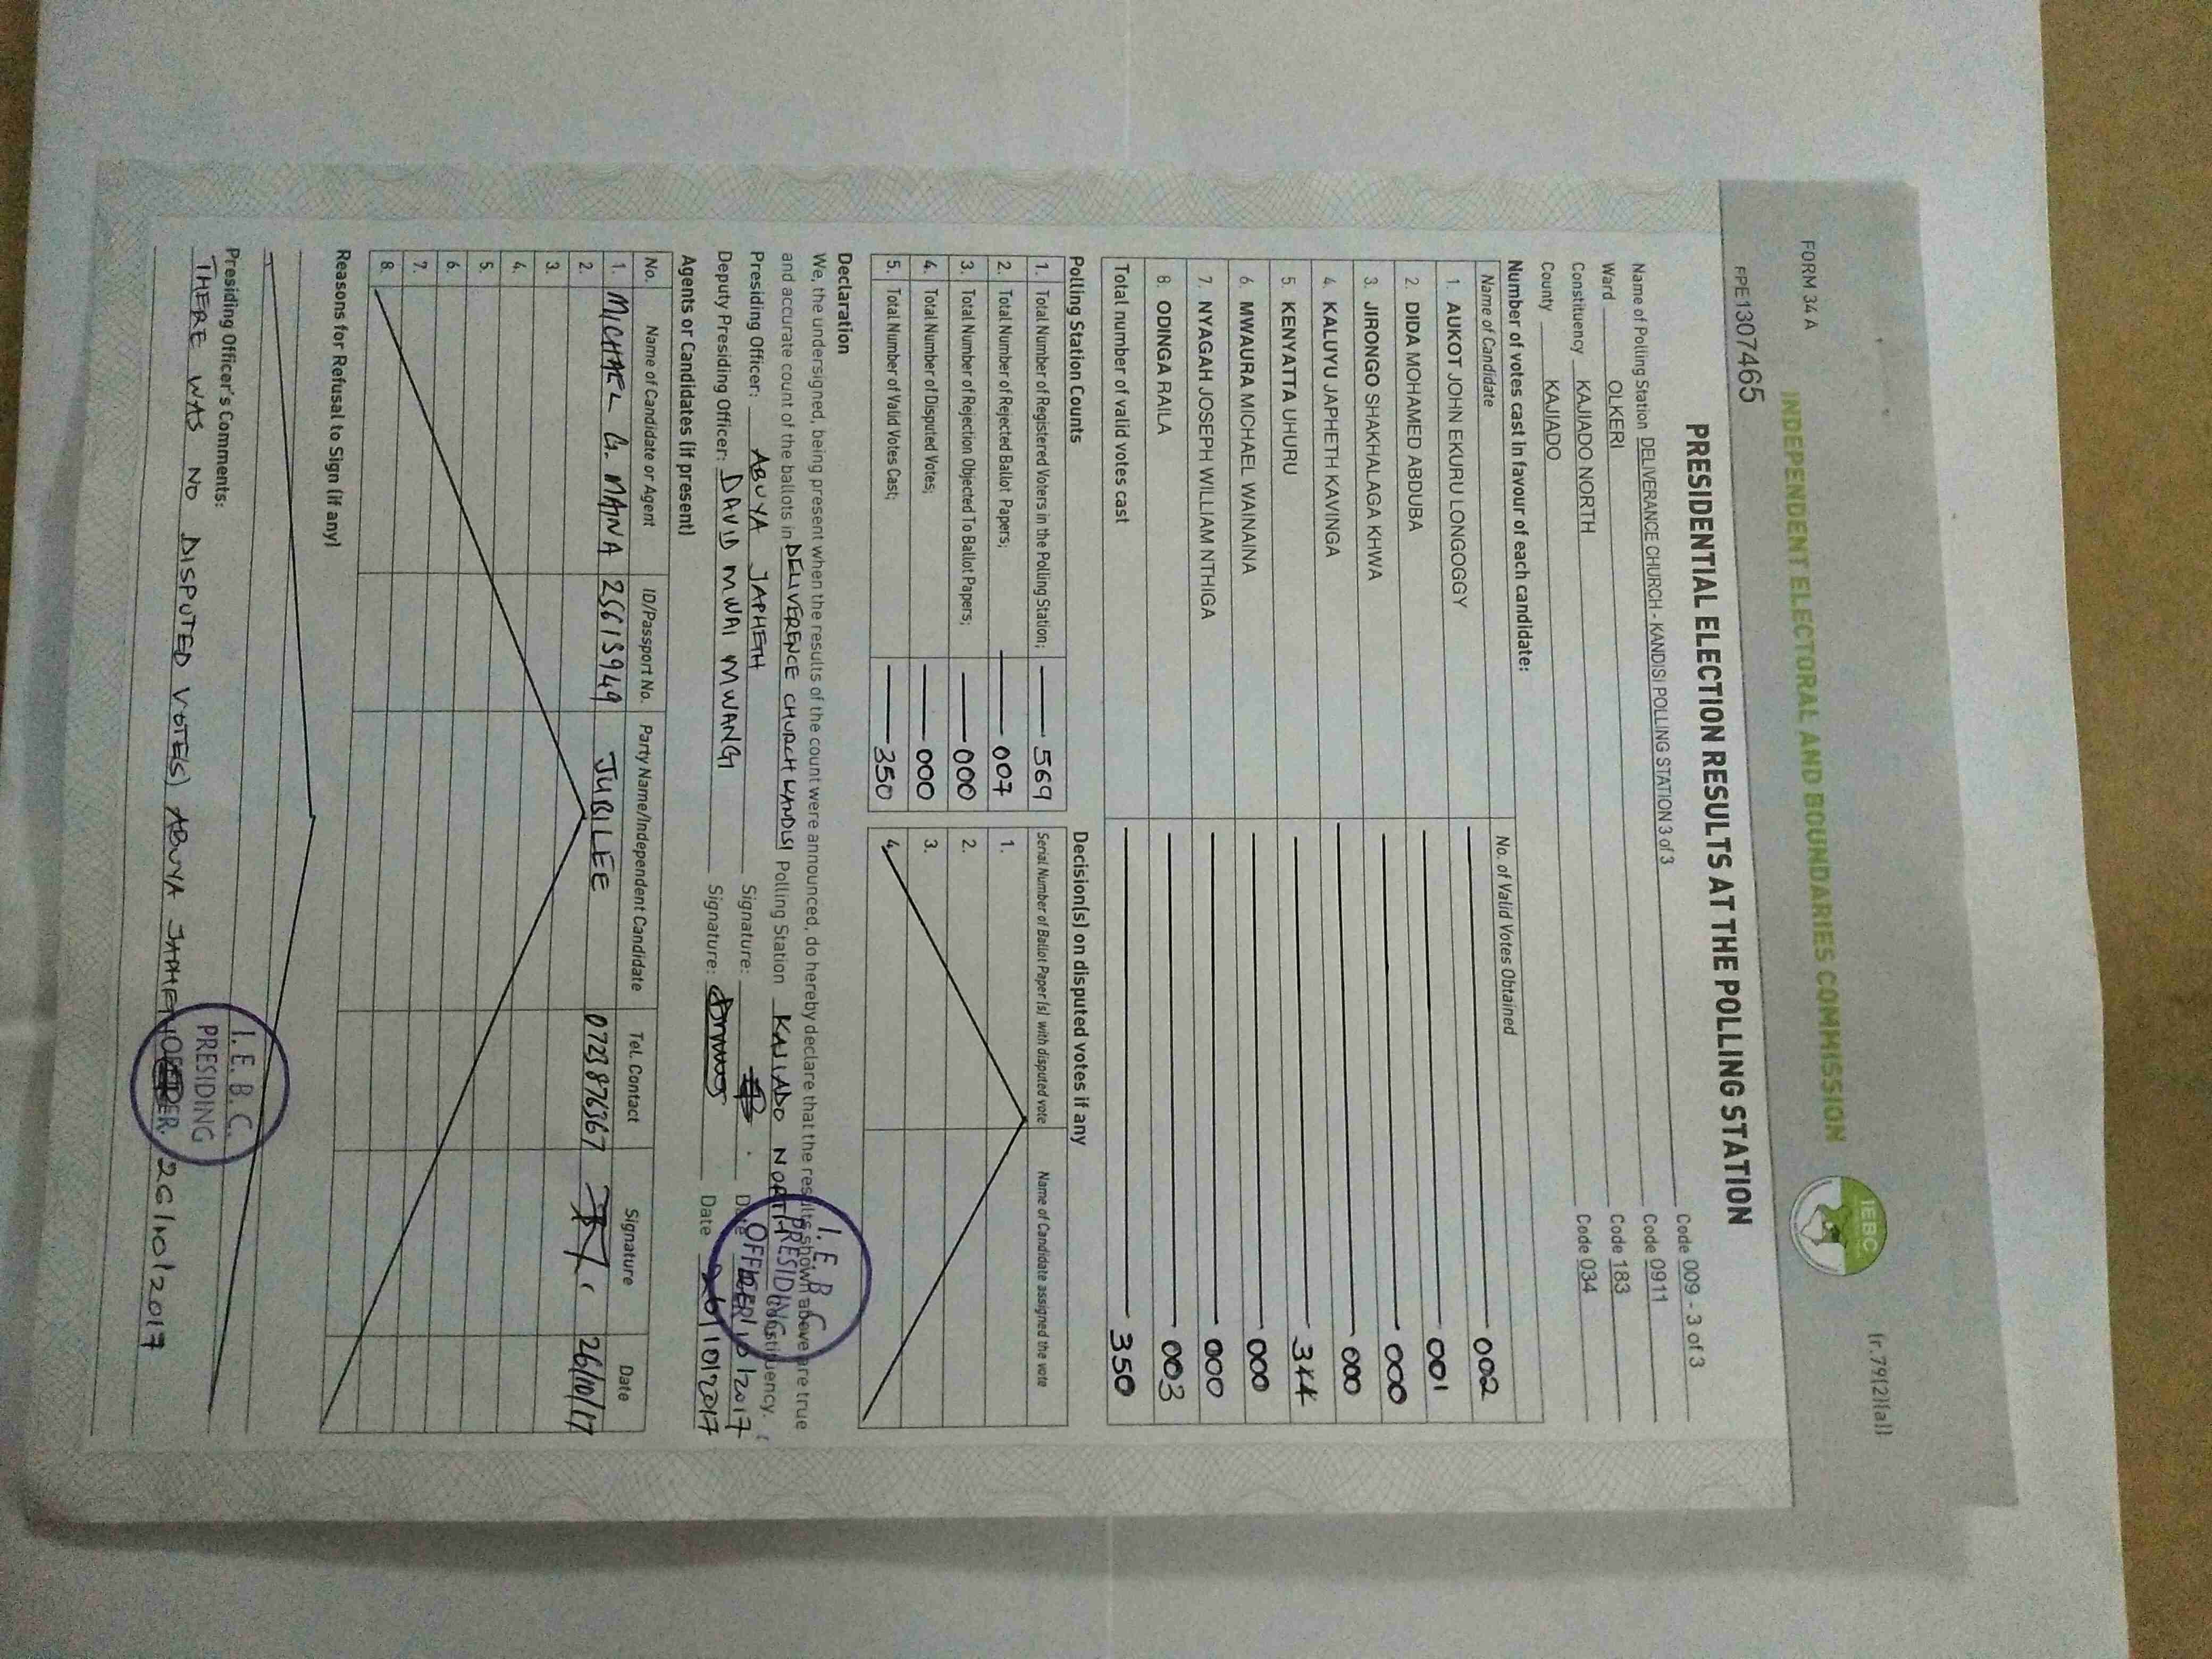 FORM 34 A
(r.79(2)(a))
INDEPENDENT ELECTORAL AND BOUNDARIES COMMISSION
IEBC
FPE1307465
PRESIDENTIAL ELECTION RESULTS AT THE POLLING STATION
Name of Polling Station DELIVERANCE CHURCH - KANDISI POLLING STATION 3 of 3 Code 009 - 3 of 3
Ward OLKERI Code 0911
Constituency KAJIADO NORTH Code 183
County KAJIADO Code 034
Number of votes cast in favour of each candidate:
Name of Candidate No. of Valid Votes Obtained
1. AUKOT JOHN EKURU LONGOGGY 002
2. DIDA MOHAMED ABDUBA 001
3. JIRONGO SHAKHALAGA KHWA 000
4. KALUYU JAPHETH KAVINGA 000
5. KENYATTA UHURU 344
6. MWAURA MICHAEL WAINAINA 000
7. NYAGAH JOSEPH WILLIAM NTHIGA 000
8. ODINGA RAILA 003
Total number of valid votes cast 350
Polling Station Counts
1. Total Number of Registered Voters in the Polling Station; 569
2. Total Number of Rejected Ballot Papers; 007
3. Total Number of Rejection Objected To Ballot Papers; 000
4. Total Number of Disputed Votes; 000
5. Total Number of Valid Votes Cast; 350
Decision(s) on disputed votes if any
Serial Number of Ballot Paper (s) with disputed vote Name of Candidate assigned the vote
1.
2.
3.
4.
Declaration
We, the undersigned, being present when the results of the count were announced, do hereby declare that the results shown above are true
and accurate count of the ballots in DELIVERENCE CHURCH KANDISI Polling Station KAJIADO NORTH Constituency.
Presiding Officer: ABUYA JAPHETH Signature: Date 26/10/2017
Deputy Presiding Officer: DAVID MWAI MWANGI Signature: Date 26/10/2017
I. E. B. C.
PRESIDING
OFFICER
Agents or Candidates (if present)
No. Name of Candidate or Agent ID/Passport No. Party Name/Independent Candidate Tel. Contact Signature Date
1. MICHAEL G. MAINA 25613949 JUBILEE 0723876367 26/10/17
2.
3.
4.
5.
6.
7.
8.
Reasons for Refusal to Sign (if any)
Presiding Officer's Comments:
THERE WAS NO DISPUTED VOTE(S) ABUYA JAPHETH 26/10/2017
I. E. B. C.
PRESIDING
OFFICER.